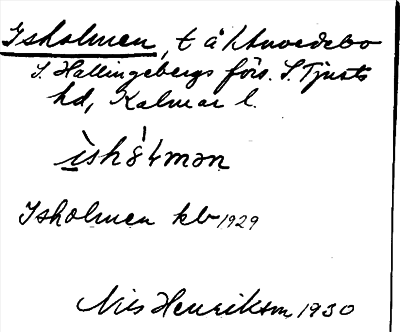 Isholmen, t å Huvedebo
S. Hallingebergs förs. S. Tjusts
hd, Kalmar l.
Isholmen kb 1929
Nils Henriksm 1930